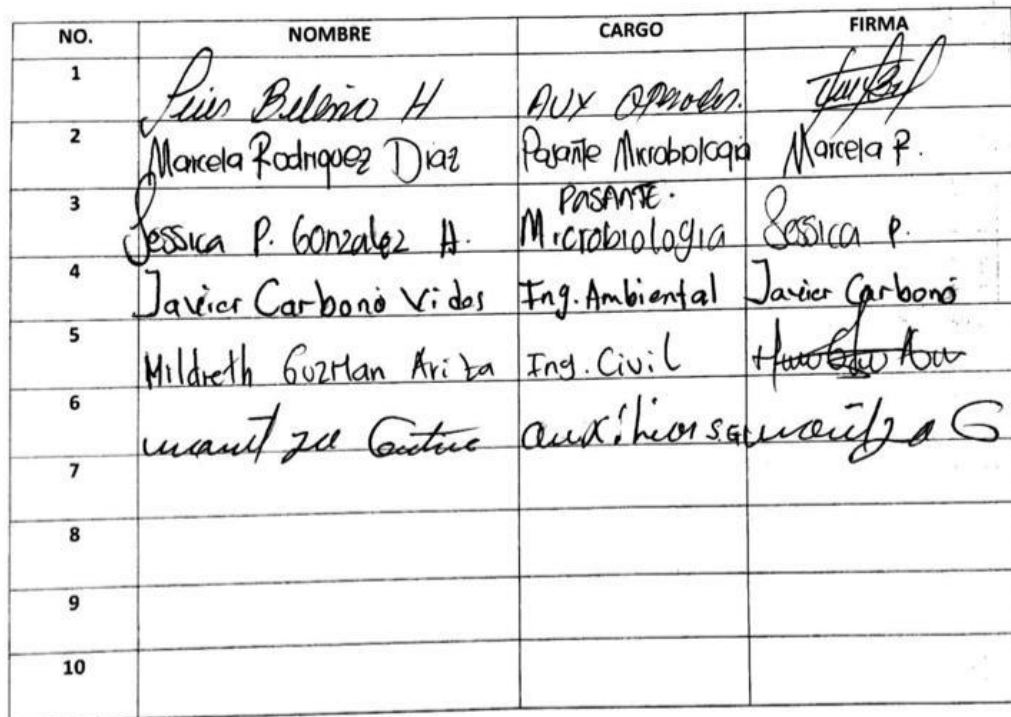 NO. NOMBRE CARGO FIRMA
1 Luis Beleño H AUX
2 Marcela Rodriguez Diaz Pasante Microbiologia Marcela R.
3 Jessica P. Gonzalez H. PASANTE. Microbiologia Jessica P.
4 Javier Carbonó Vides Ing. Ambiental Javier Carbonó
5 Mildreth Guzman Ariza Ing. Civil
6 S.G. Maritza G
7
8
9
10